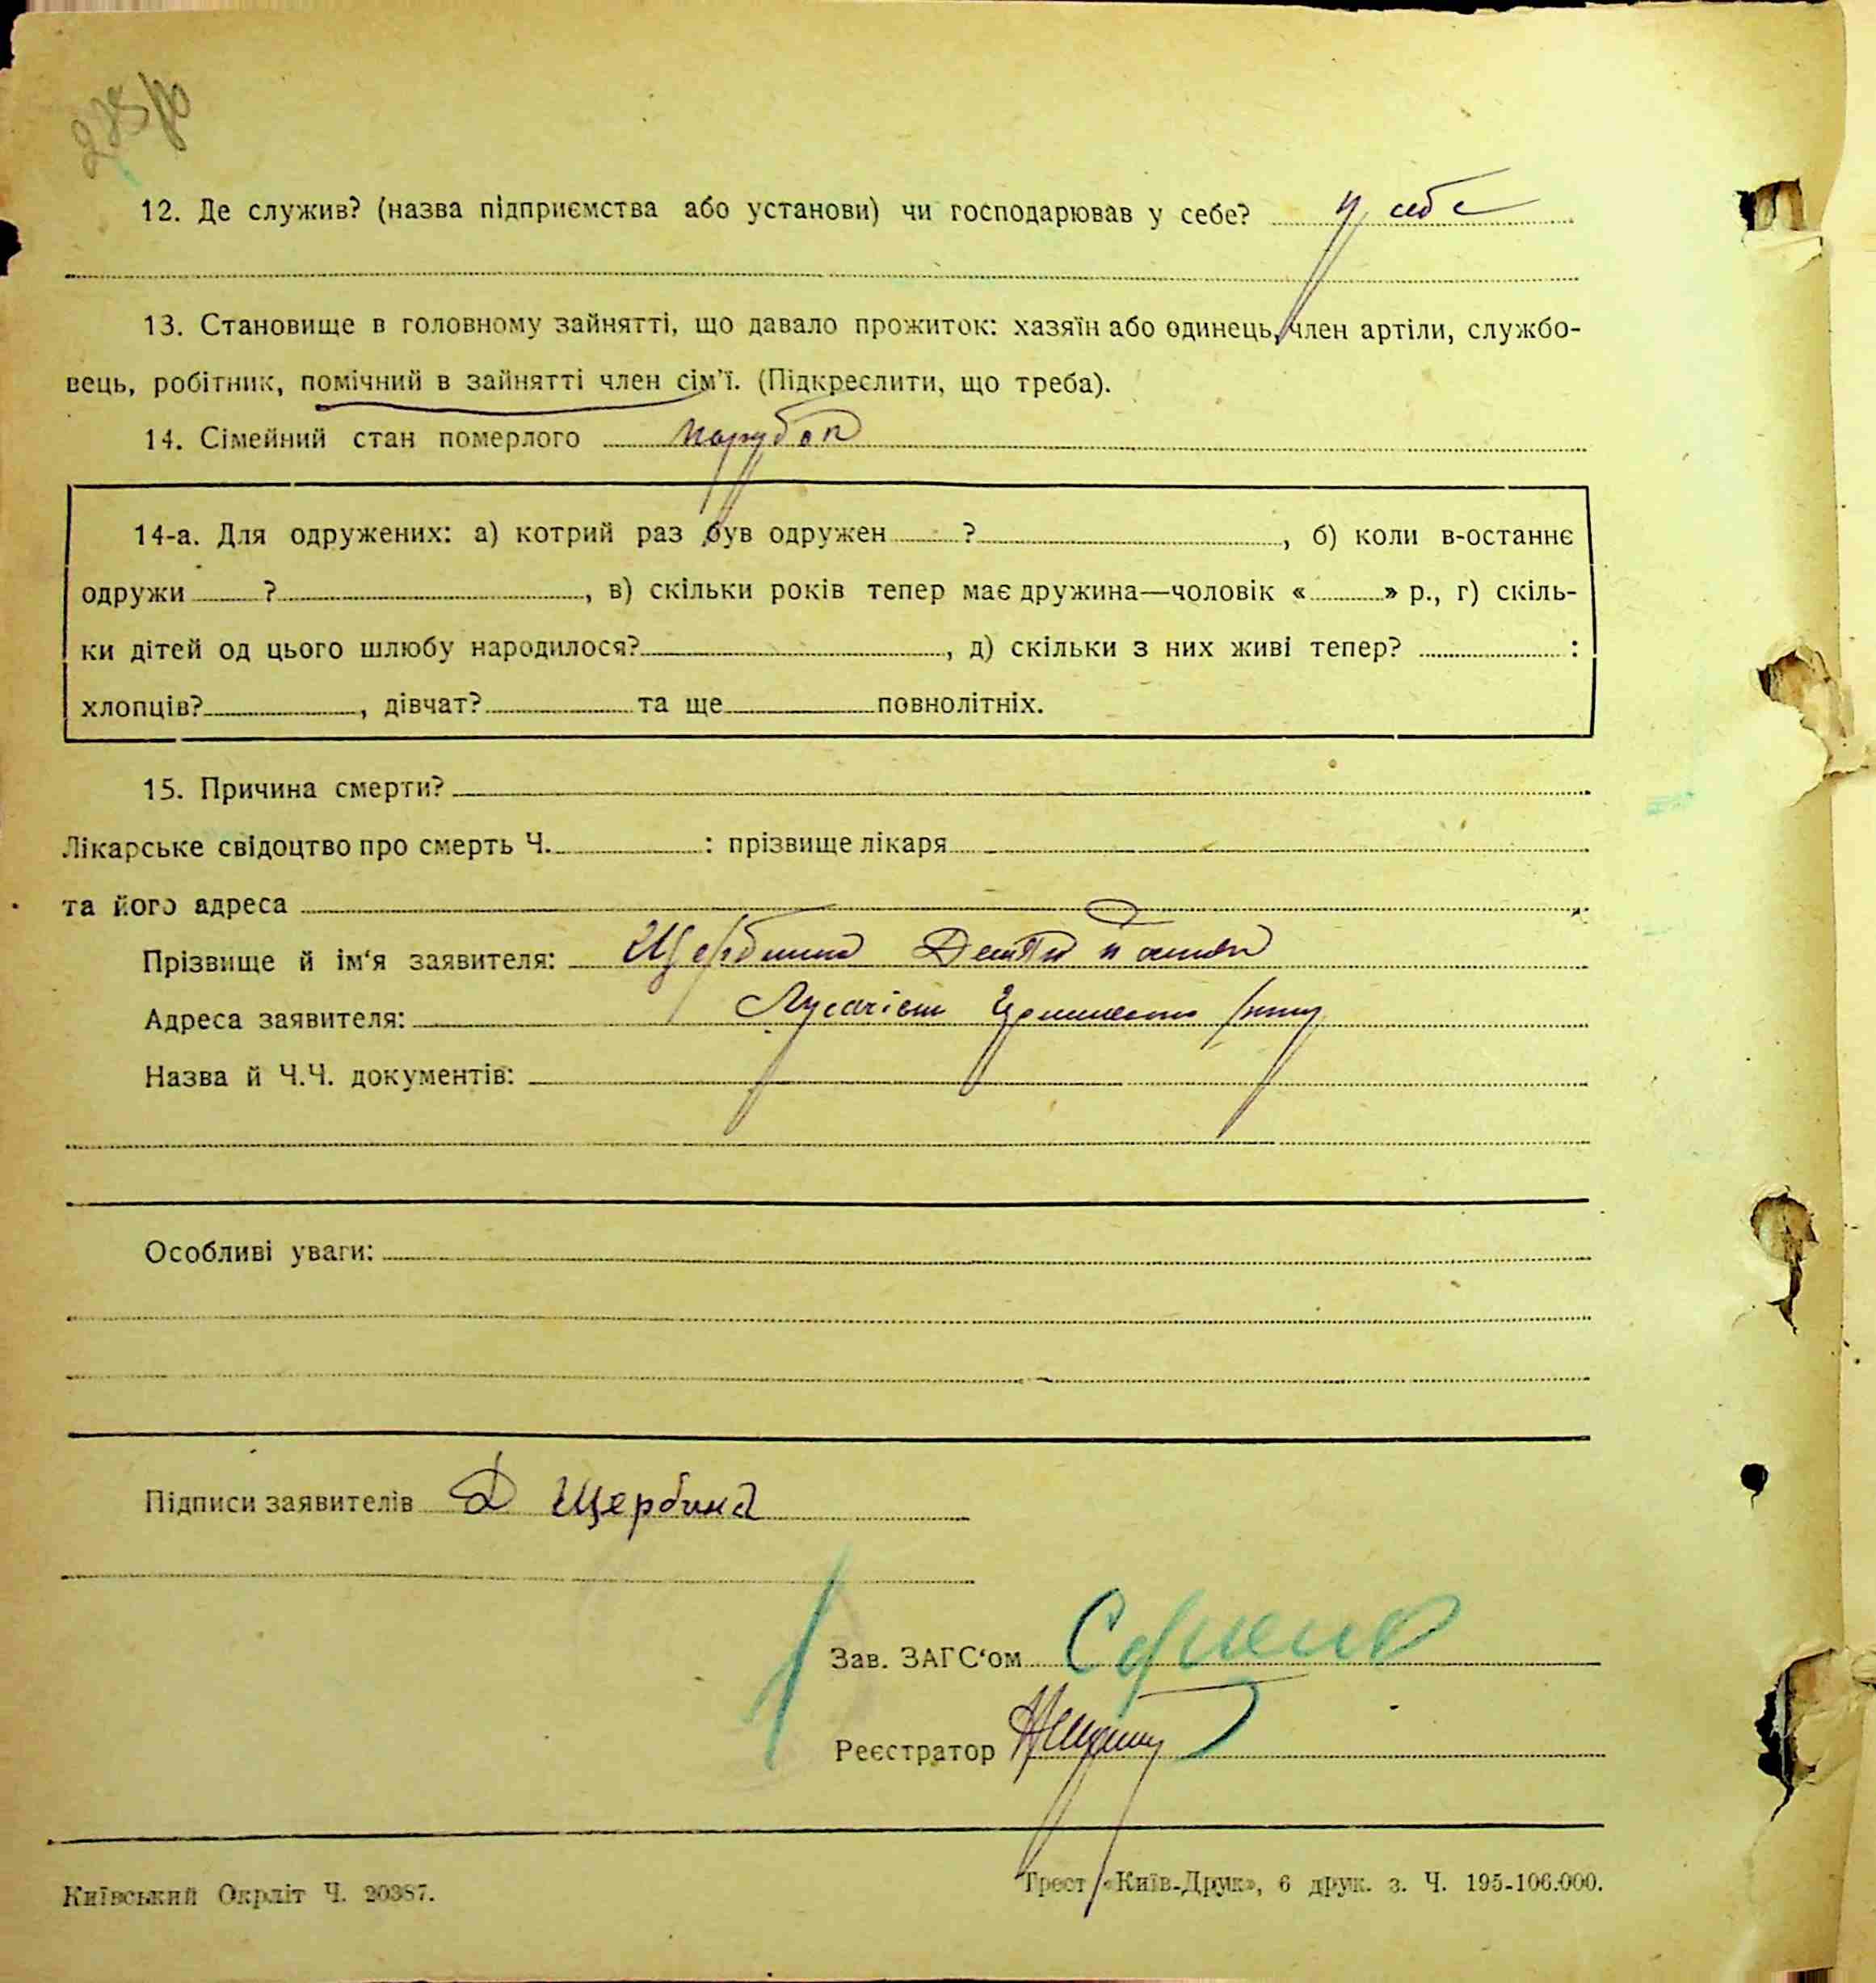 12. Де служив? (назва підприємства або установи) чи господарював у себе? у себе
13. Становище в головному зайнятті, що давало прожиток: хазяїн або одинець, член артіли, службо-
вець, робітник, помічний в зайнятті член сім'ї. (Підкреслити, що треба).
14. Сімейний стан померлого парубок
14-а. Для одружених: а) котрий раз був одружен ? , б) коли в-останнє
одружи ? , в) скільки років тепер має дружина—чоловік « » р., г) скіль-
ки дітей од цього шлюбу народилося? , д) скільки з них живі тепер? :
хлопців? , дівчат? та ще повнолітніх.
15. Причина смерти?
Лікарське свідоцтво про смерть Ч. : прізвище лікаря
та його адреса
Прізвище й ім'я заявителя: Щербина
Адреса заявителя:
Назва й Ч.Ч. документів:
Особливі уваги:
Підписи заявителів Д Щербина
Зав. ЗАГС'ом
Реєстратор
Київський Окрліт Ч. 20387.
Трест «Київ-Друк», 6 друк. з. Ч. 195-106.000.